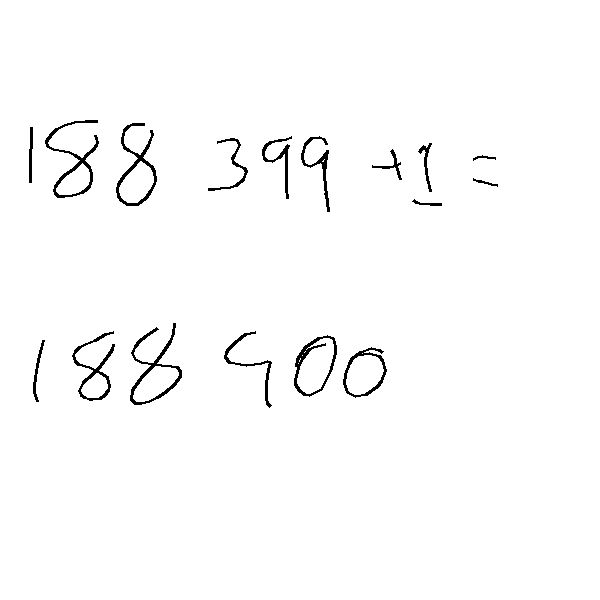 188 399 +1 =
188 400